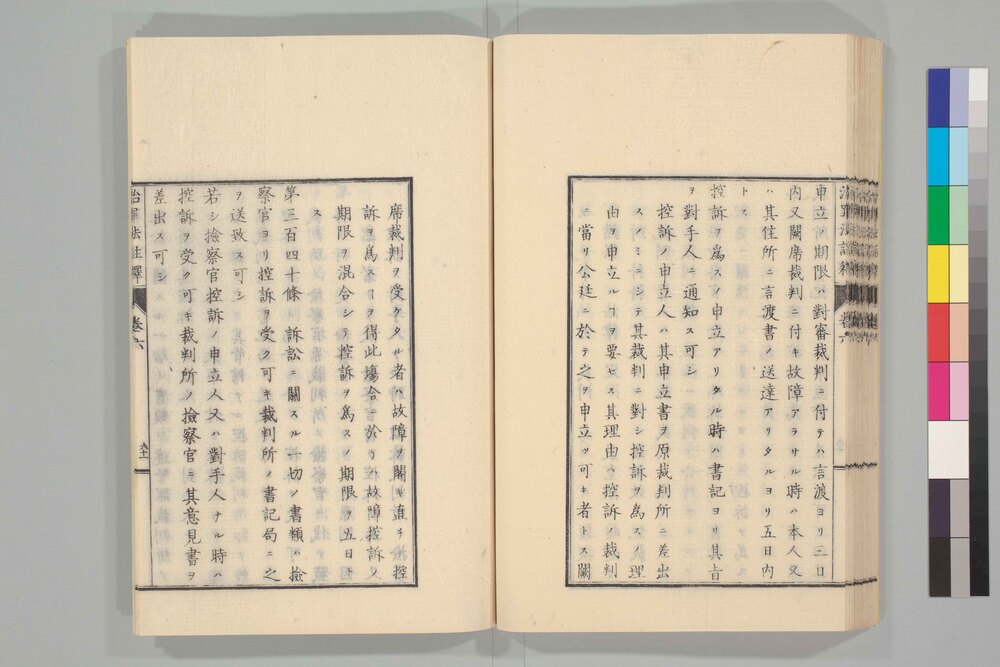 申立ノ期限ハ對審裁判ニ付テハ言渡ヨリ三日
内又闕席裁判ニ付キ故障アラサル時ハ本人又
ハ其住所ニ言渡書ノ送達アリタルヨリ五日内
トス
控訴ヲ爲スノ申立アリタル時ハ書記ヨリ其旨
ヲ對手人ニ通知ス可シ
控訴ノ申立人ハ其申立書ヲ原裁判所ニ差出
スノミニシテ其裁判ニ對シ控訴ヲ爲スノ理
由ヲ申立ルヿヲ要セス其理由ハ控訴ノ裁判
ニ當リ公廷ニ於テ之ヲ申立ツ可キ者トス闕
席裁判ヲ受ケタル者ハ故障ヲ闕キ直チニ控
訴ヲ爲スヿヲ得此塲合ニ於テハ故障控訴ノ
期限ヲ混合シテ控訴ヲ爲スノ期限ヲ五日ト
ス
第三百四十條 訴訟ニ關スル一切ノ書類ハ撿
察官ヨリ控訴ヲ受ク可キ裁判所ノ書記局ニ之
ヲ送致ス可シ
若シ撿察官控訴ノ申立人又ハ對手人ナル時ハ
控訴ヲ受ク可キ裁判所ノ撿察官ニ其意見書ヲ
差出ス可シ
治罪法註釋 卷六